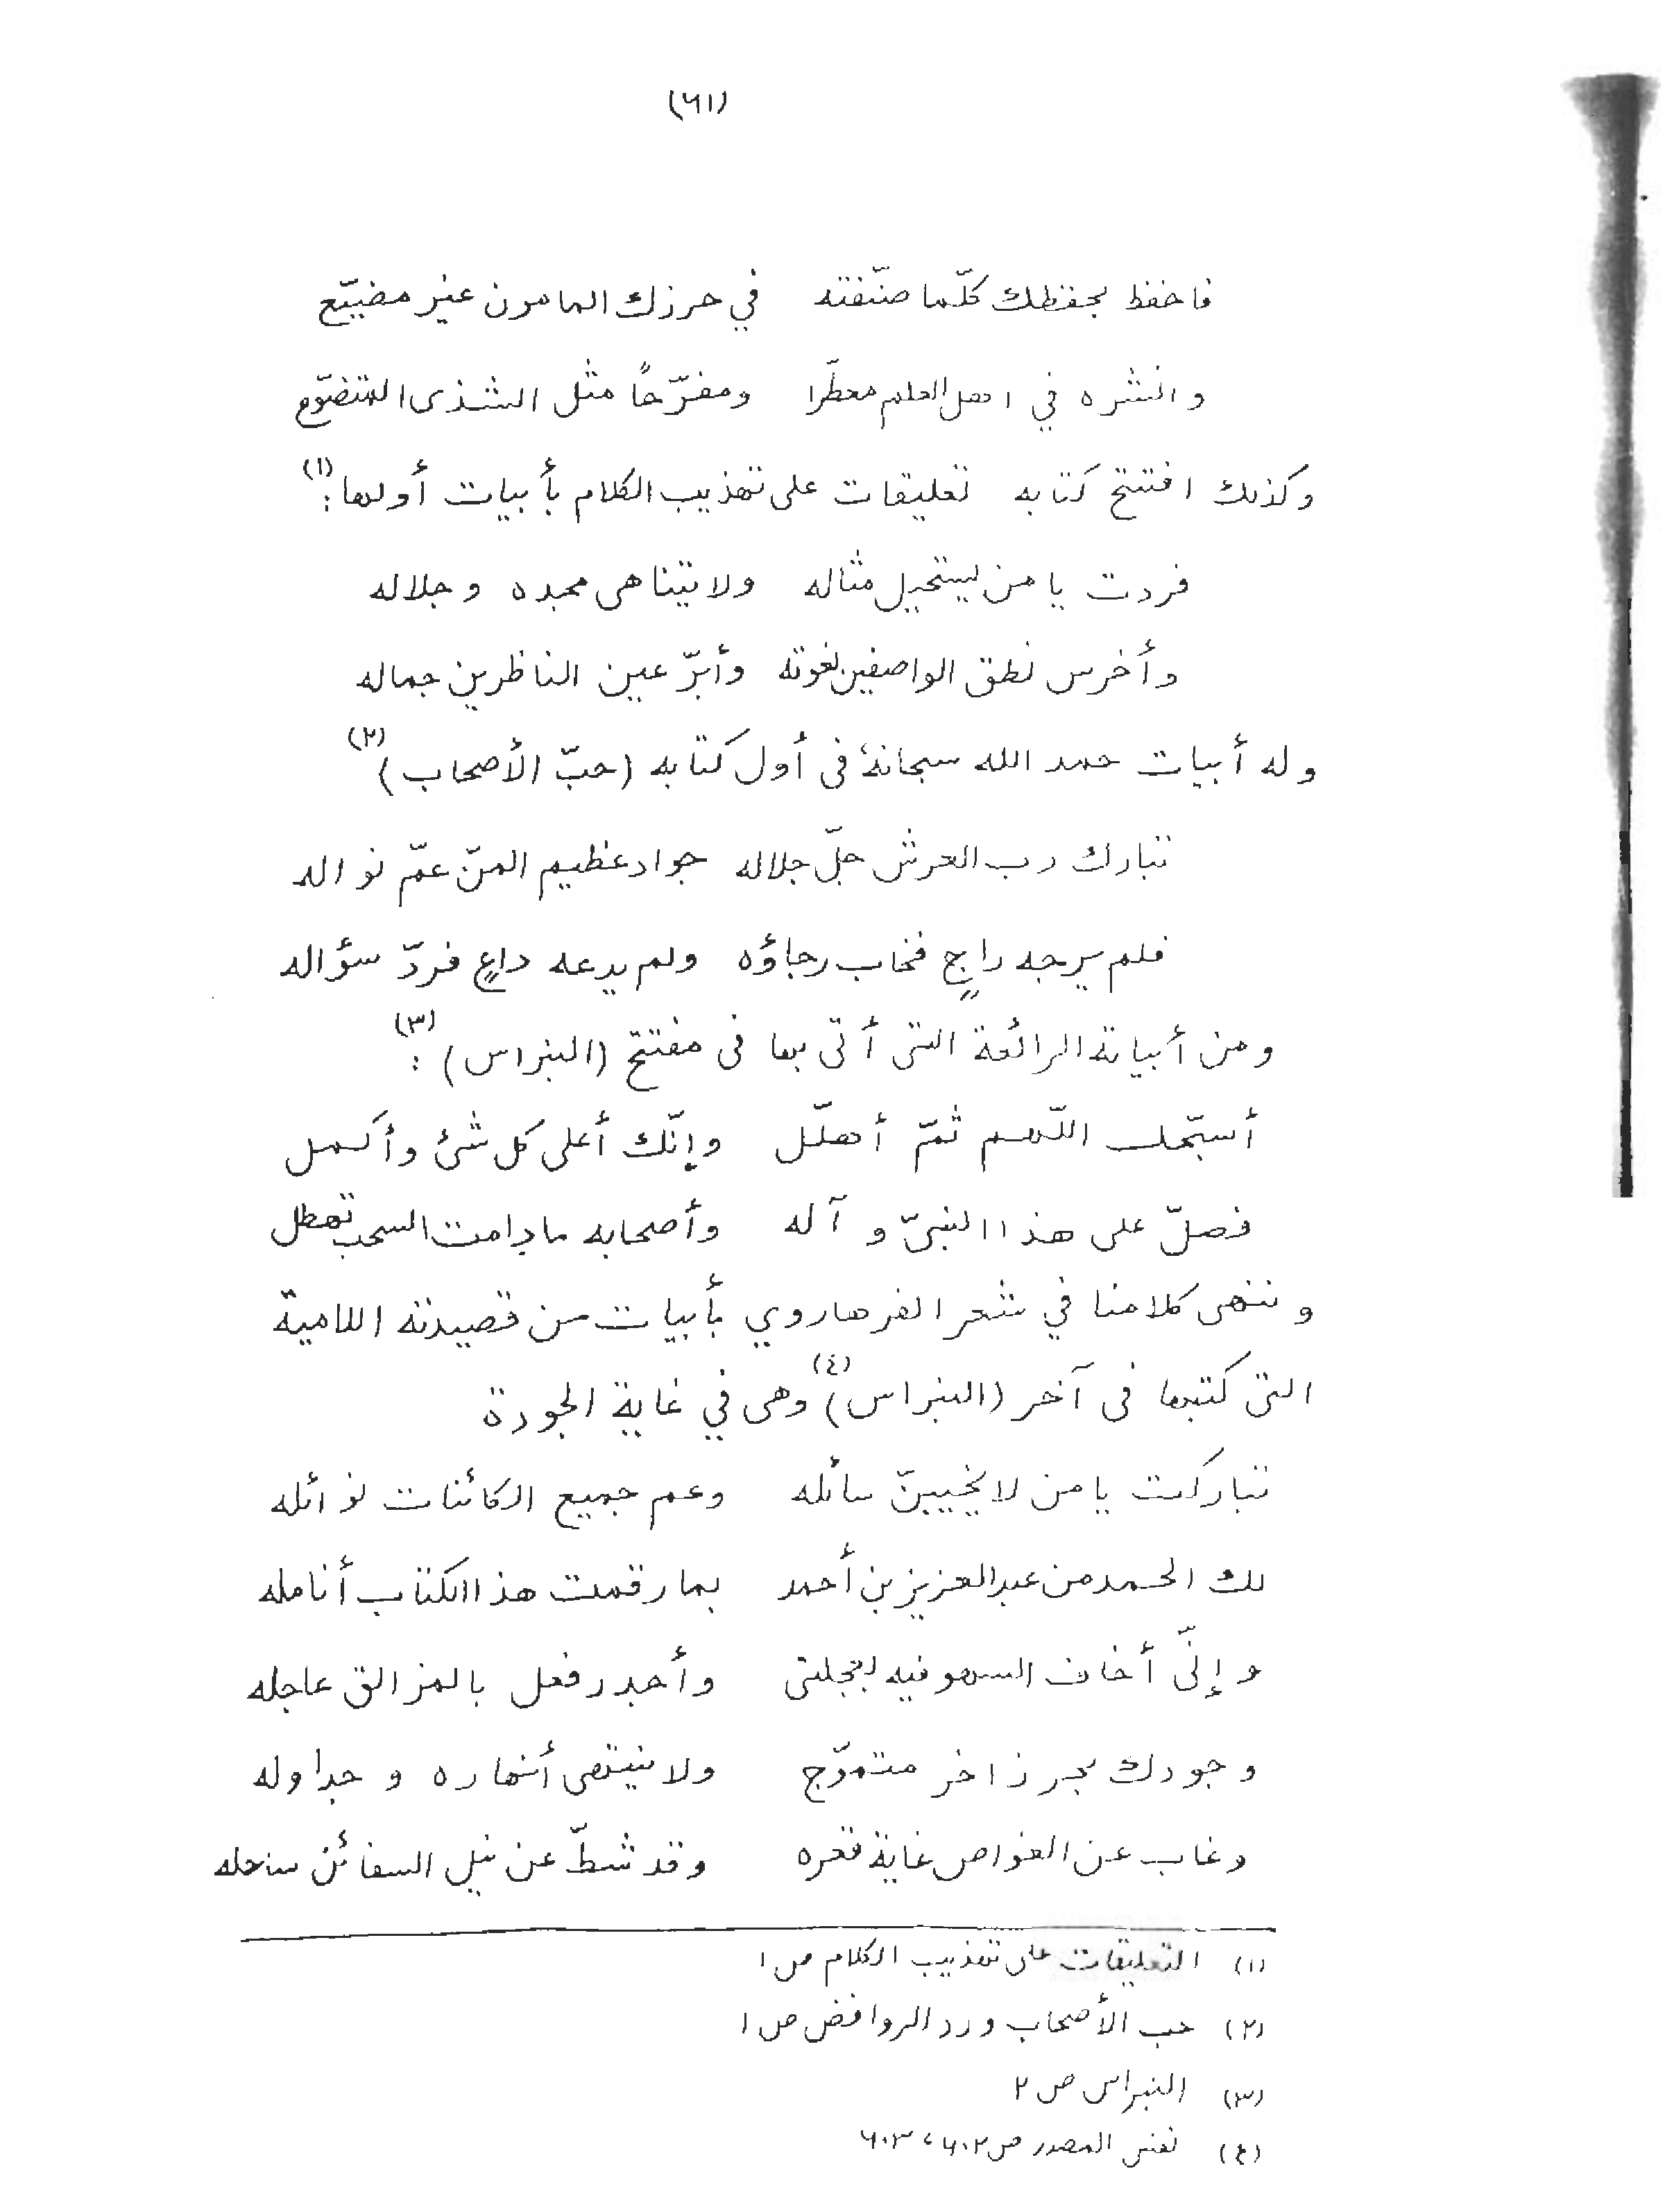 (٦١)
فاحفظ بحفظك كلّما صنّفته في حرزك المامون غير مضيّع
وانشره في اهل العلم معطّرا ومفرّحاً مثل الشذى المتضوّع
وكذلك افتتح كتابه تعليقات على تهذيب الكلام بأبيات أولها: (١)
فردت يا من يستحيل مثاله ولا يتناهى مجده وجلاله
وأخرس نطق الواصفين نعوته وأبرّ عين الناظرين جماله
وله أبيات حمد الله سبحانهٗ فى أول كتابه (حبّ الأصحاب) (٢)
تبارك رب العرش جلّ جلاله جواد عظيم المنّ عمّ نواله
فلم يرجه راجٍ فخاب رجاؤه ولم يدعه داعٍ فردّ سؤاله
ومن أبياته الرائعة التى أتى بها فى مفتتح (النبراس) (٣) :
أسبّحك اللّهم ثمّ أهلّل وإنّك أعلى كل شئ وأكمل
فصلّ على هذا النبىّ و آله وأصحابه ما دامت السحب تهطل
وننهى كلامنا في شعر الفرهاروي بأبيات من قصيدته اللامية
التى كتبها فى آخر (النبراس) (٤) وهى في غاية الجودة
تباركت يا من لا يخيبنّ سائله وعم جميع الكائنات نوائله
لك الحمد من عبد العزيز بن أحمد بما رقمت هذا الكتاب أنامله
وإنّى أخاف السهو فيه لعجلتى وأجدر فعل بالمزالق عاجله
وجودك بحر زاخر متموّج ولا ينتهى أنهاره و جداوله
وغاب عن الغواص غاية قعره وقد شطّ عن نيل السفائن ساحله
(١) التعليقات على تهذيب الكلام ص ١
(٢) حب الأصحاب ورد الروافض ص ١
(٣) النبراس ص ٢
(٤) نفس المصدر ص ٦٠٢، ٦٠٣